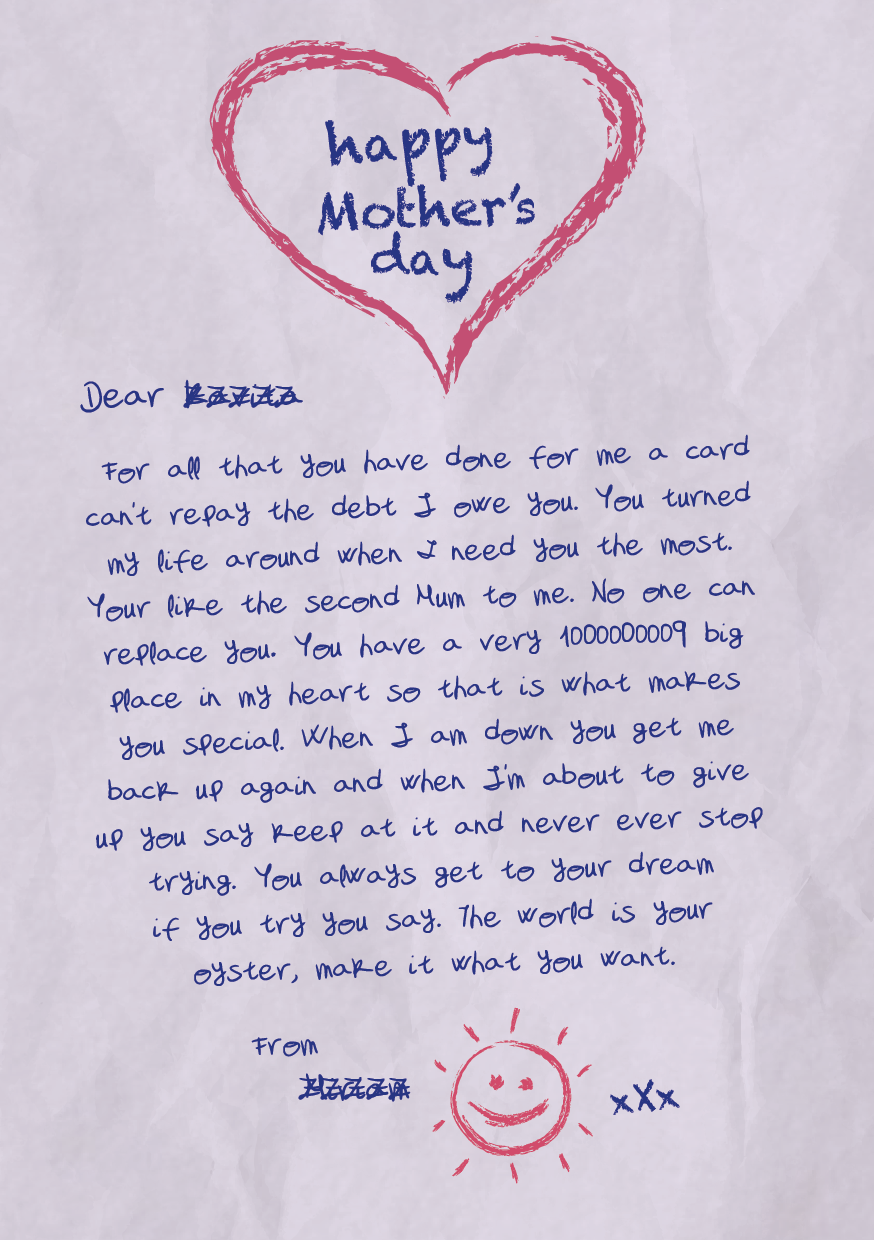 happy
Mother's
day
Dear
For all that you have done for me a card
can't repay the debt I owe you. You turned
my life around when I need you the most.
Your like the second Mum to me. No one can
replace you. You have a very 1000000009 big
place in my heart so that is what makes
you special. When I am down you get me
back up again and when I'm about to give
up you say keep at it and never ever stop
trying. You always get to your dream
if you try you say. The world is your
oyster, make it what you want.
From
xXx